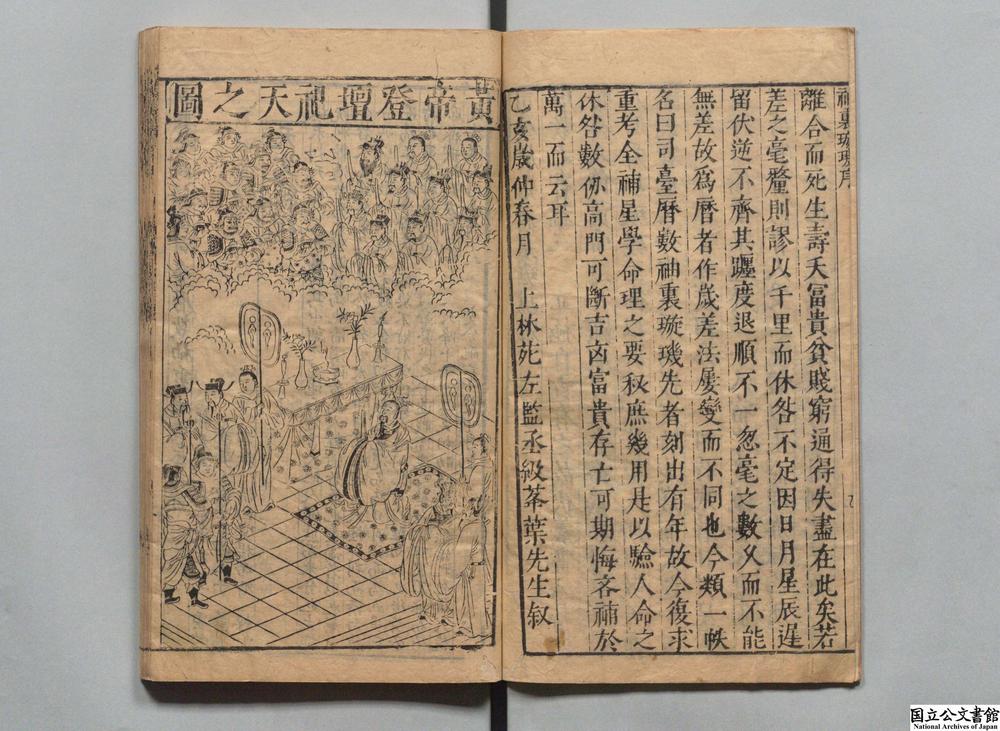 袖裏璇璣序
離合而死生壽夭冨貴貧賤窮通得失盡在此矣若
差之毫釐則謬以千里而休咎不定因日月星辰遲
留伏逆不齊其躔度退順不一忽毫之數乂而不能
無差故爲曆者作歲差法屡變而不同也今類一帙
名曰司臺曆數袖裏璇璣先者刻出有年故今復求
重考全補星學命理之要秘庶幾用是以驗人命之
休咎數仞高門可斷吉凶富貴存亡可期悔吝補於
萬一而云耳
乙亥歲仲春月 上林苑左監丞級峯葉先生叙
黃帝登壇祀天之圖
国立公文書館
National Archives of Japan